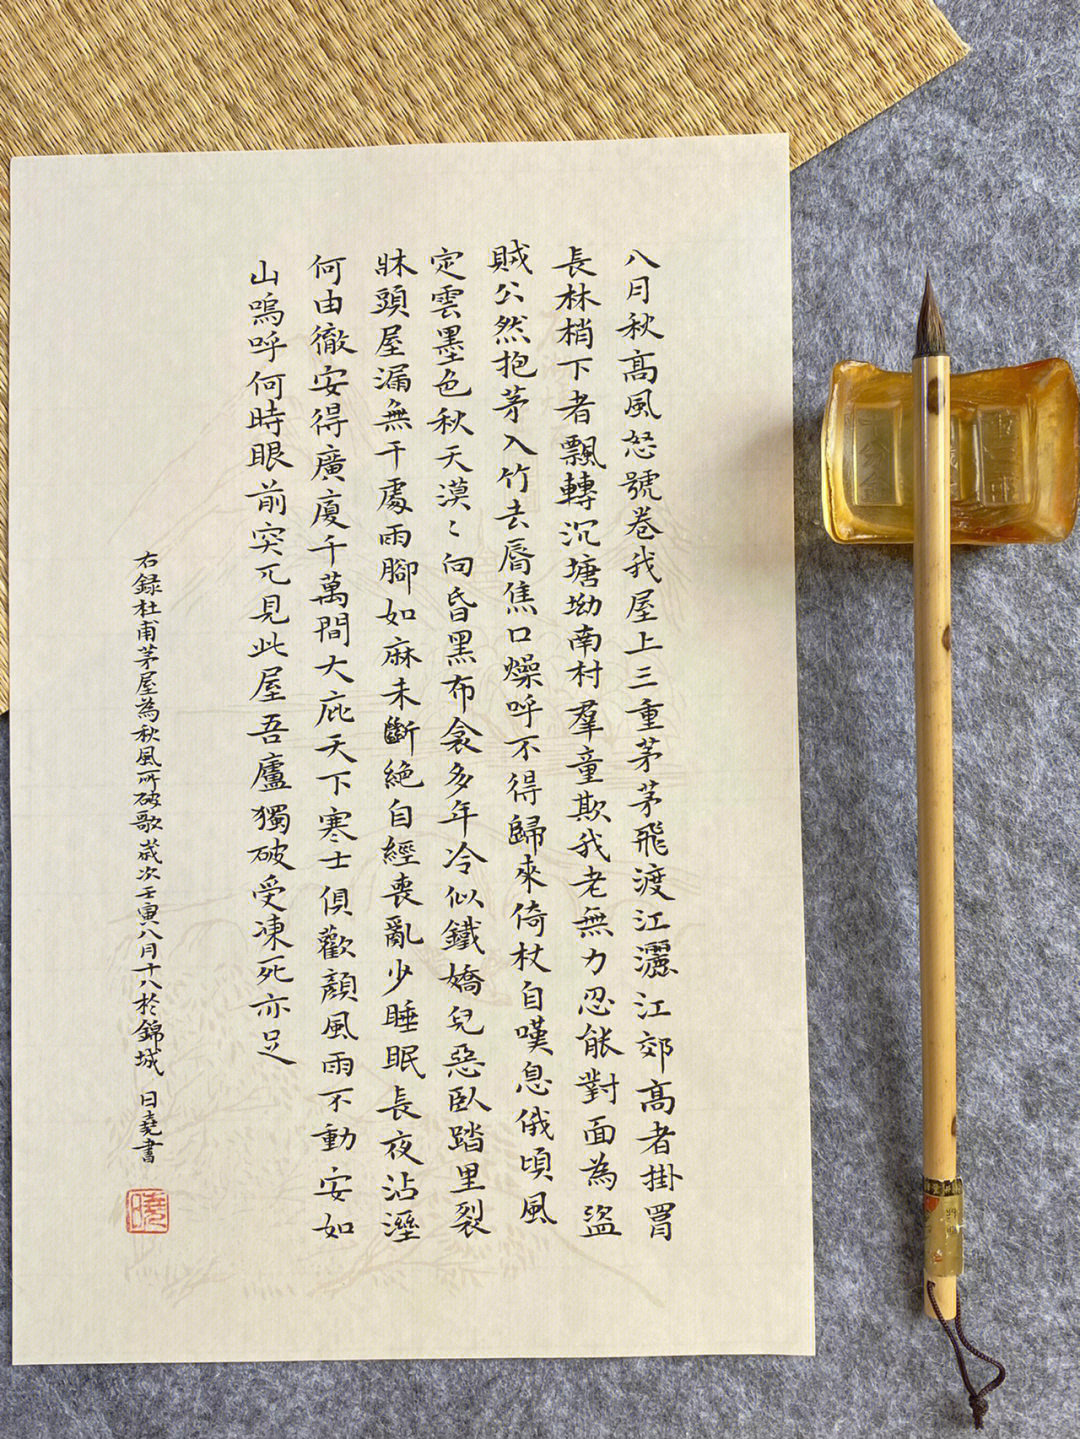 八月秋高風怒號卷我屋上三重茅茅飛渡江灑江郊高者掛罥
長林梢下者飄轉沉塘坳南村羣童欺我老無力忍能對面為盜
賊公然抱茅入竹去脣焦口燥呼不得歸來倚杖自嘆息俄頃風
定雲墨色秋天漠〻向昏黑布衾多年冷似鐵嬌兒惡臥踏里裂
牀頭屋漏無干處雨腳如麻未斷絕自經喪亂少睡眠長夜沾溼
何由徹安得廣廈千萬間大庇天下寒士俱歡顏風雨不動安如
山嗚呼何時眼前突兀見此屋吾廬獨破受凍死亦足
右錄杜甫茅屋為秋風所破歌歲次壬寅八月十八於錦城 日堯書
曉